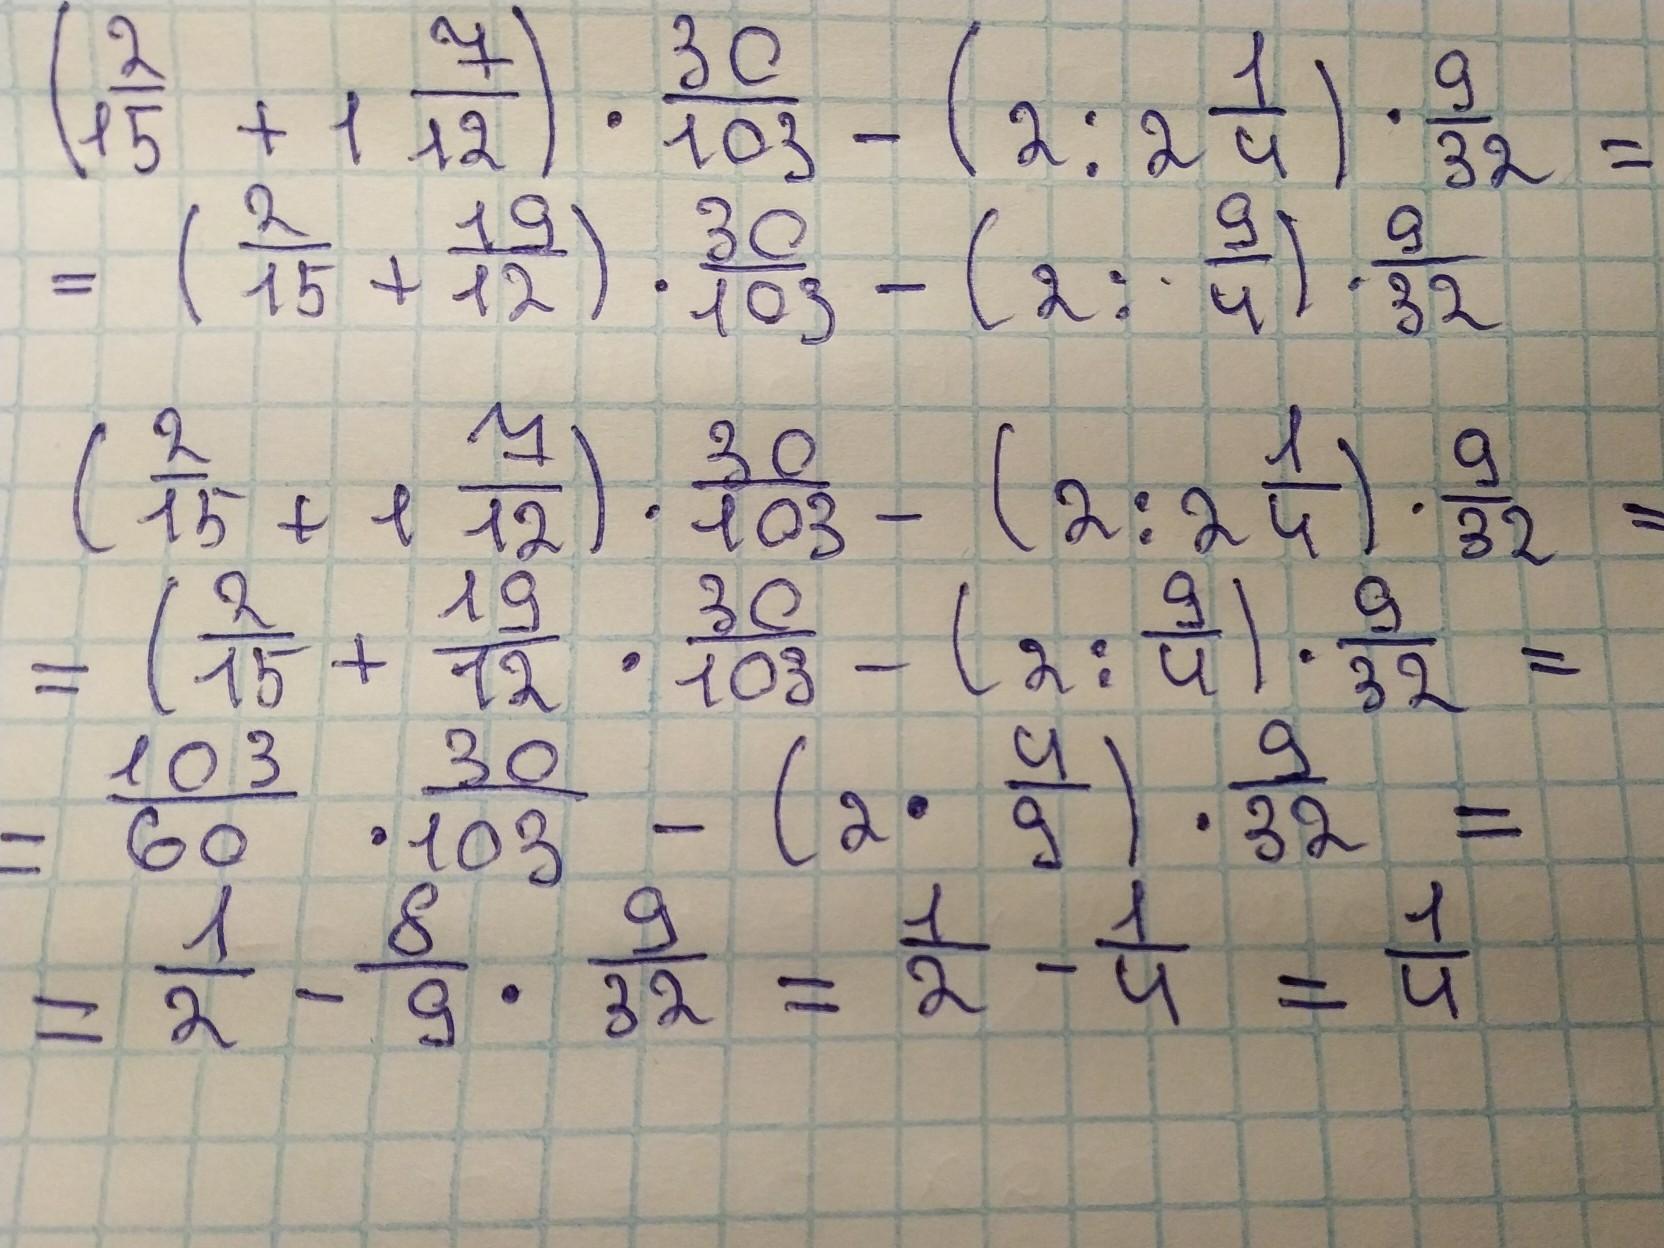 (2/15 + 1 7/12) · 30/103 - (2 : 2 1/4) · 9/32 =
= (2/15 + 19/12) · 30/103 - (2 : · 9/4) · 9/32
(2/15 + 1 7/12) · 30/103 - (2 : 2 1/4) · 9/32 =
= (2/15 + 19/12 · 30/103 - (2 : 9/4) · 9/32 =
= 103/60 · 30/103 - (2 · 4/9) · 9/32 =
= 1/2 - 8/9 · 9/32 = 1/2 - 1/4 = 1/4